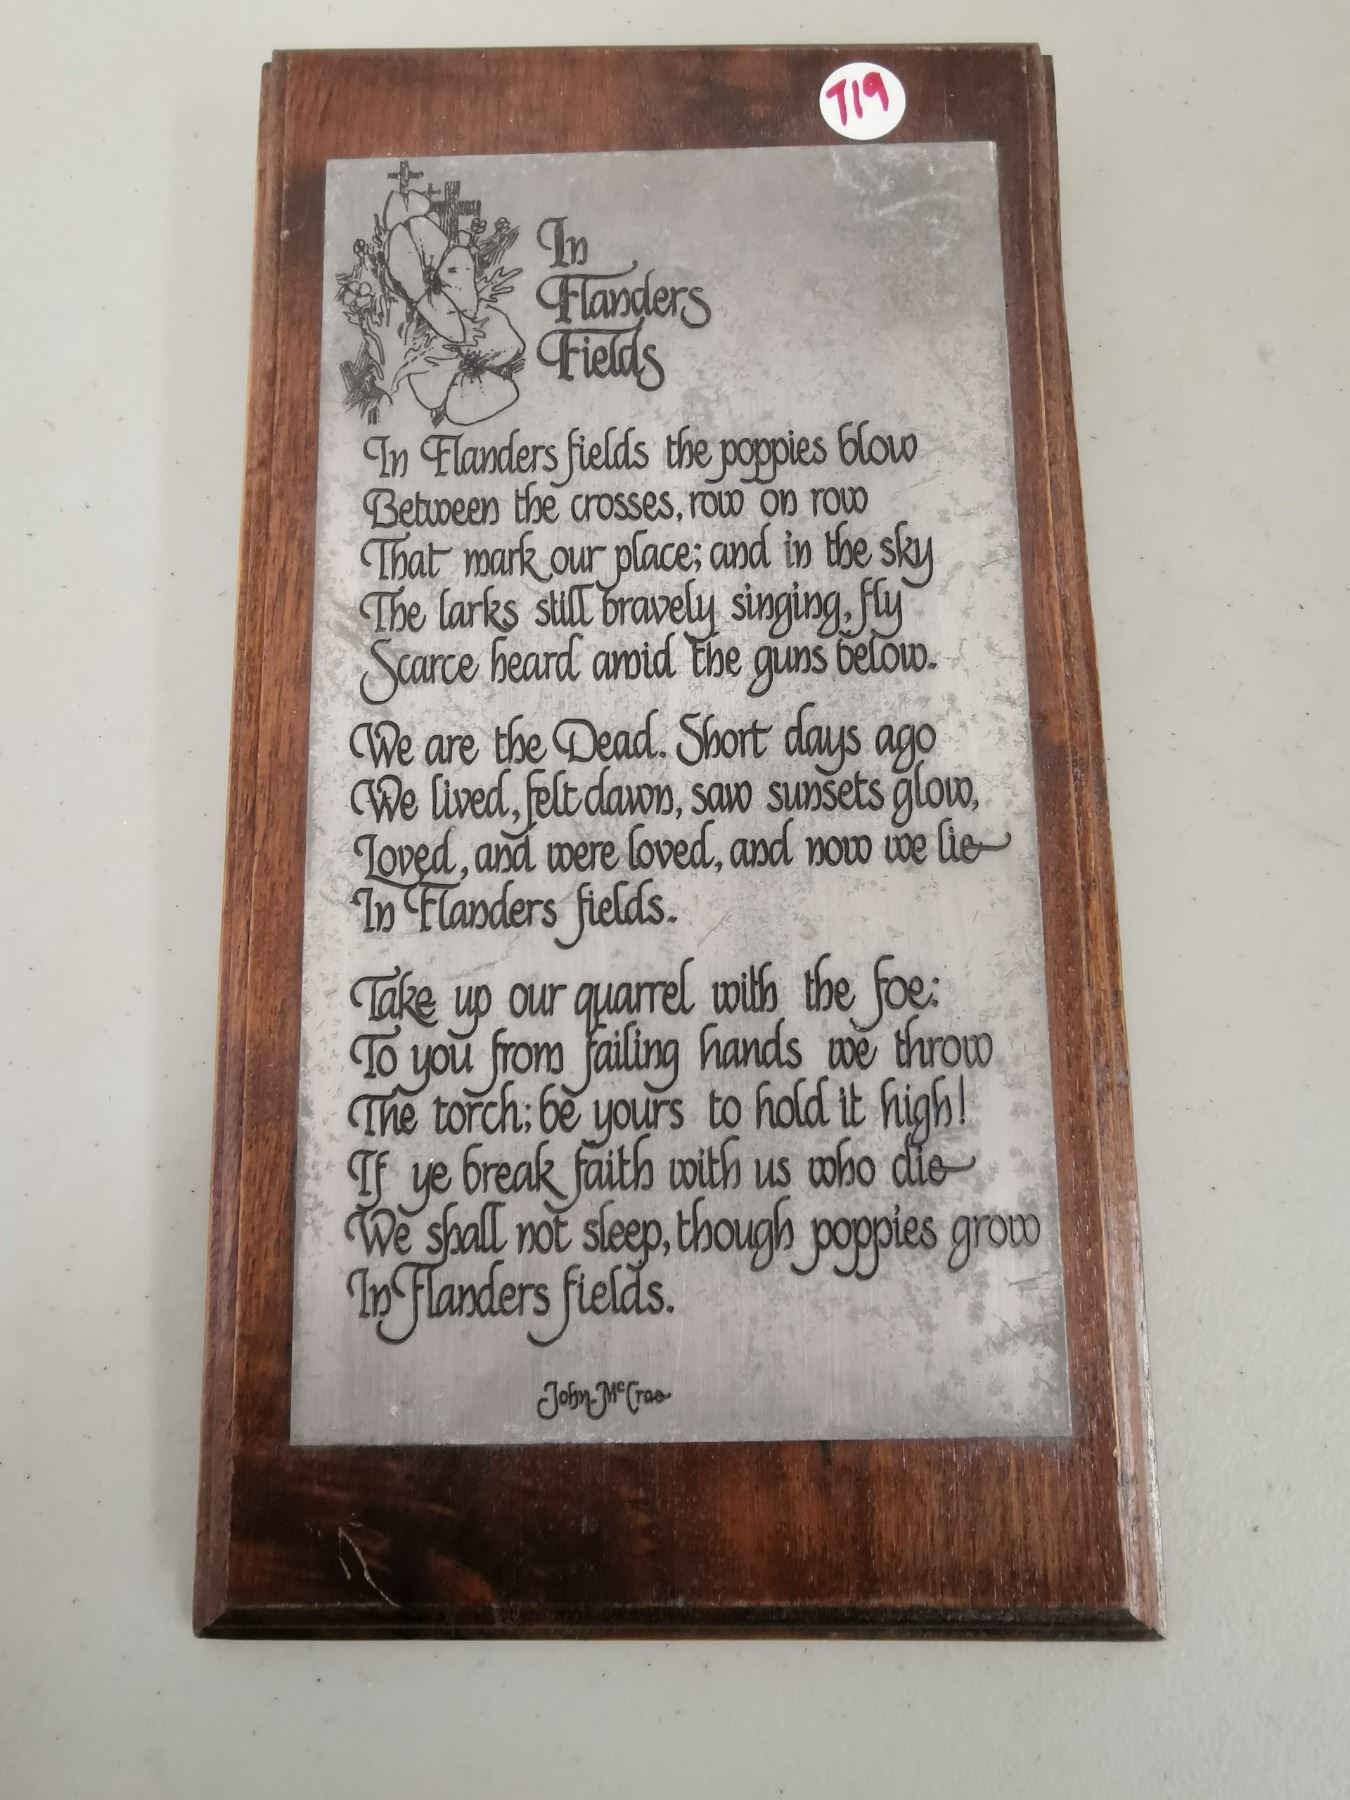 T19
In
Flanders
Fields
In Flanders fields the poppies blow
Between the crosses, row on row
That mark our place; and in the sky
The larks still bravely singing, fly
Scarce heard amid the guns below.
We are the Dead. Short days ago
We lived, felt dawn, saw sunsets glow,
Loved, and were loved, and now we lie
In Flanders fields.
Take up our quarrel with the foe:
To you from failing hands we throw
The torch; be yours to hold it high!
If ye break faith with us who die
We shall not sleep, though poppies grow
In Flanders fields.
John McCrae